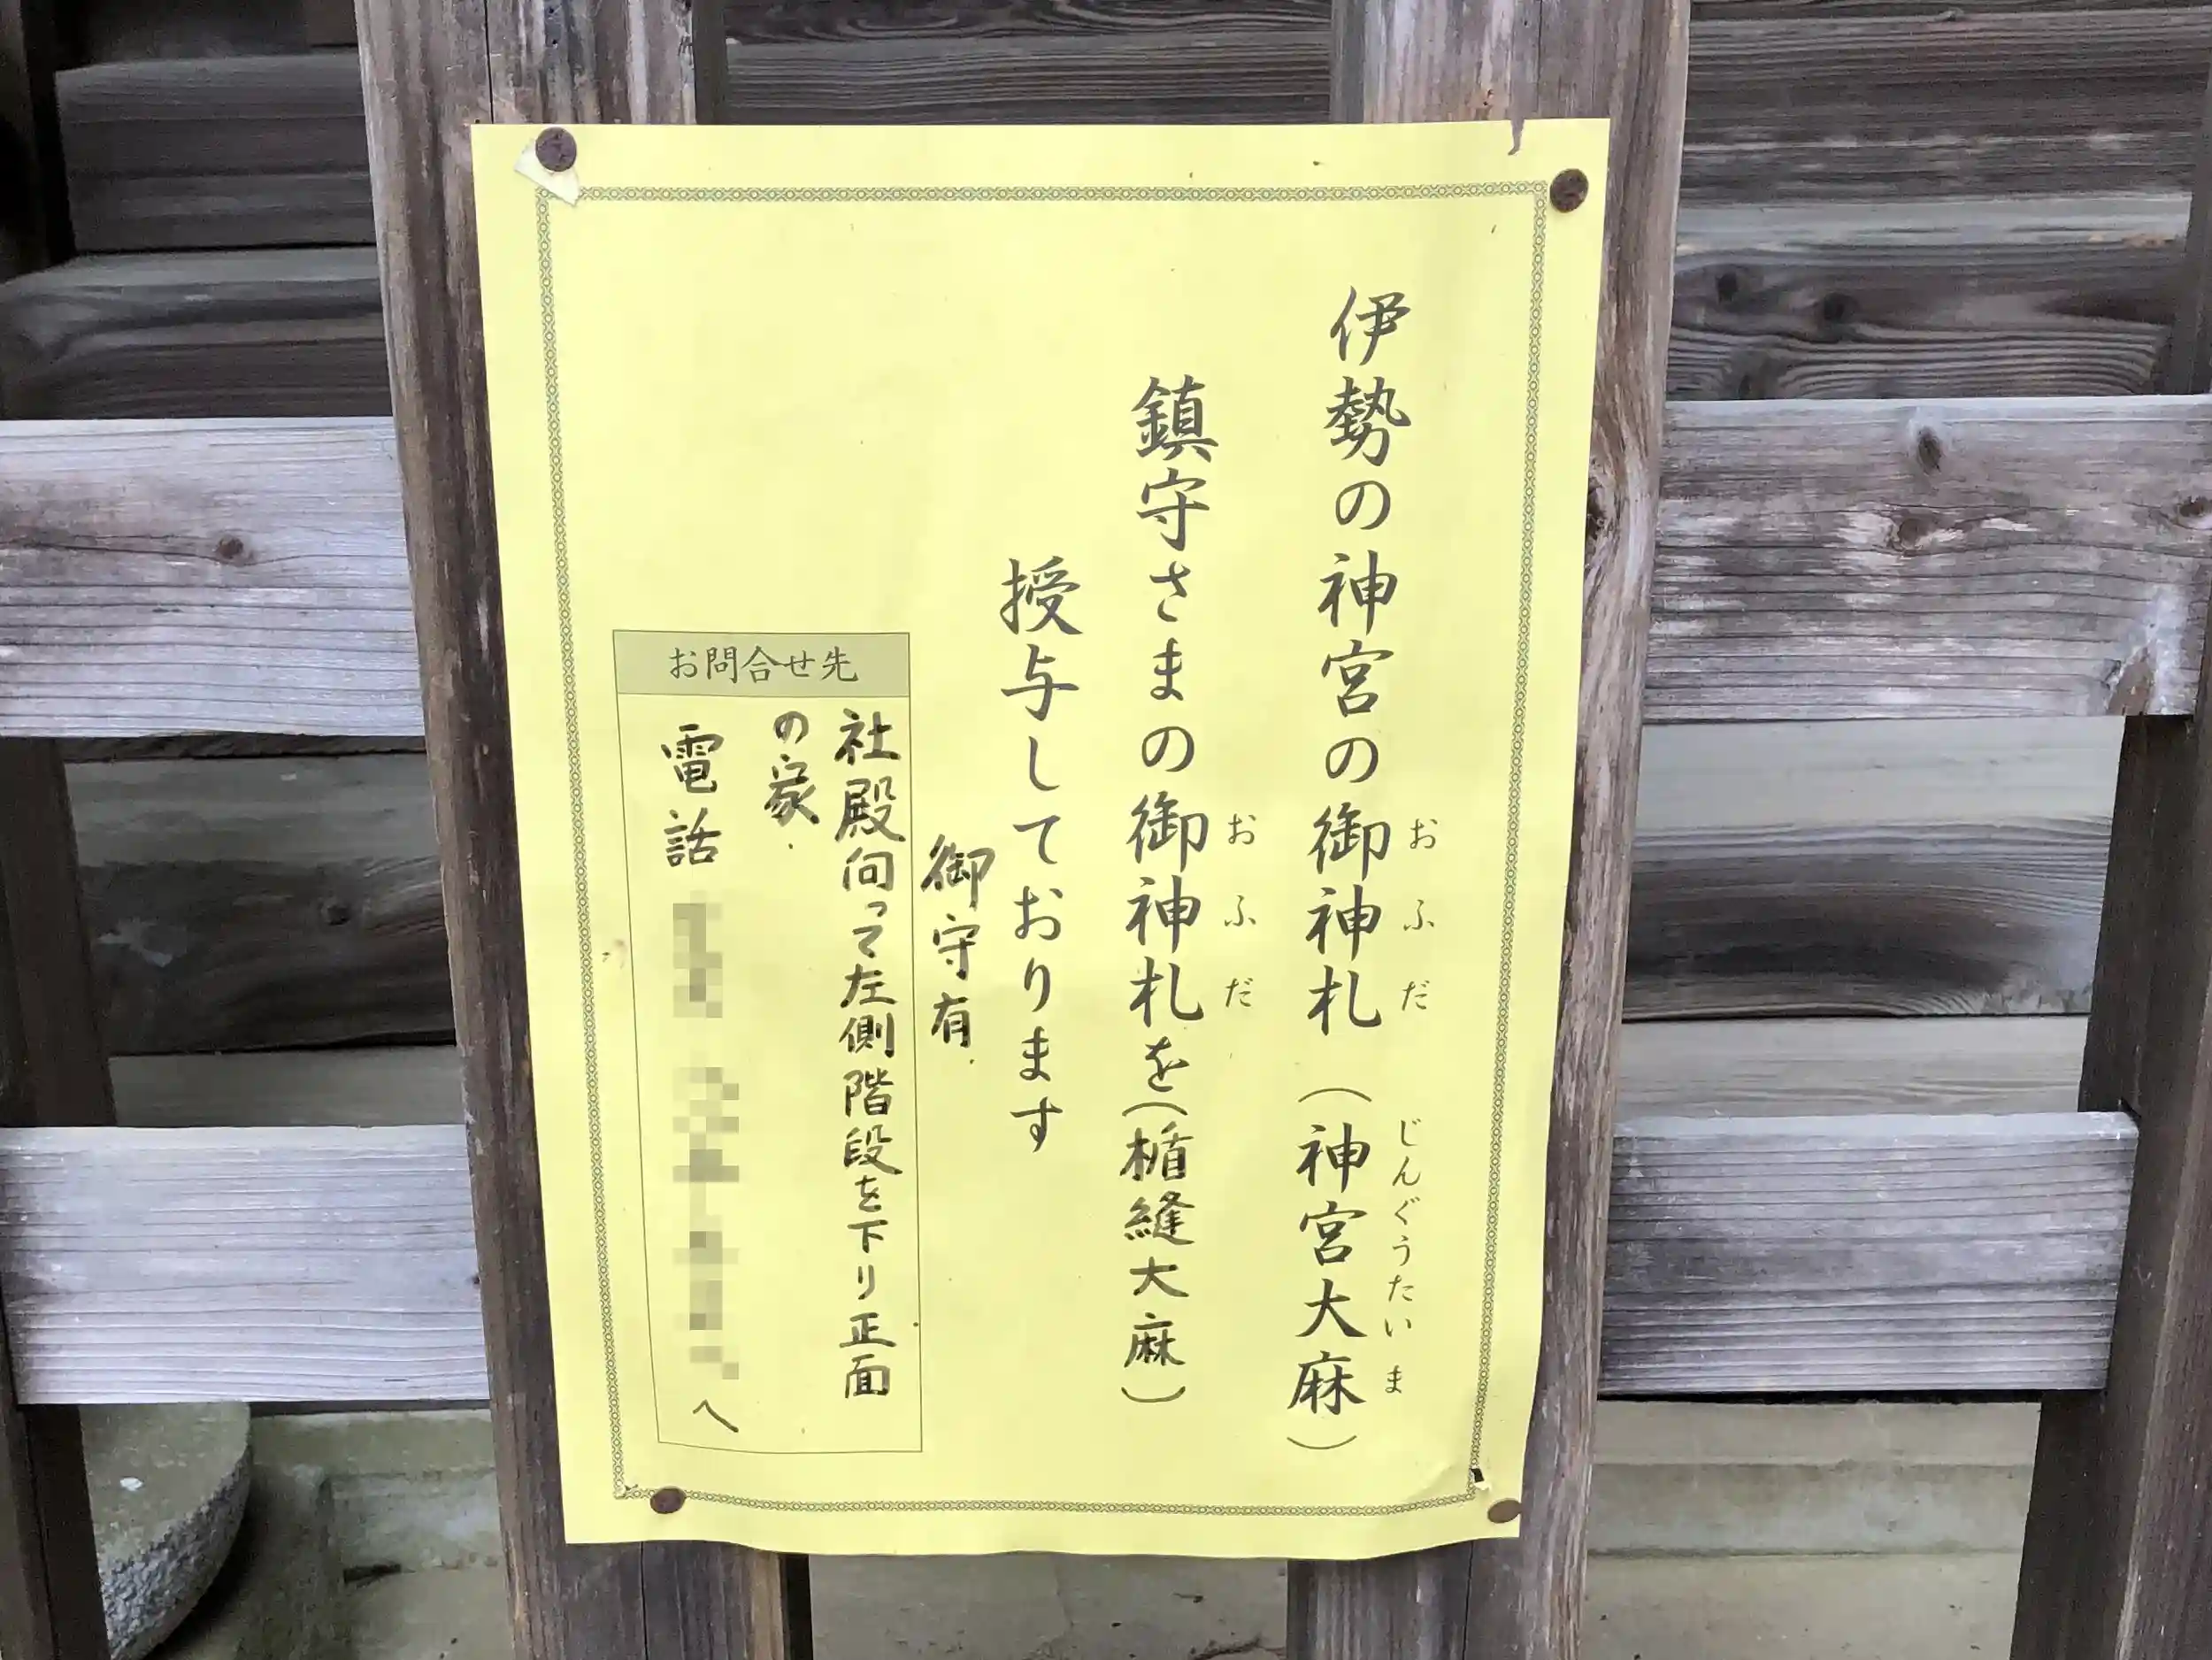 伊勢の神宮の御神札（神宮大麻）
おふだ
じんぐうたいま
鎮守さまの御神札を（楯縫大麻）
おふだ
授与しております
御守有.
お問合せ先
社殿向って左側階段を下り正面
の家.
電話
へ